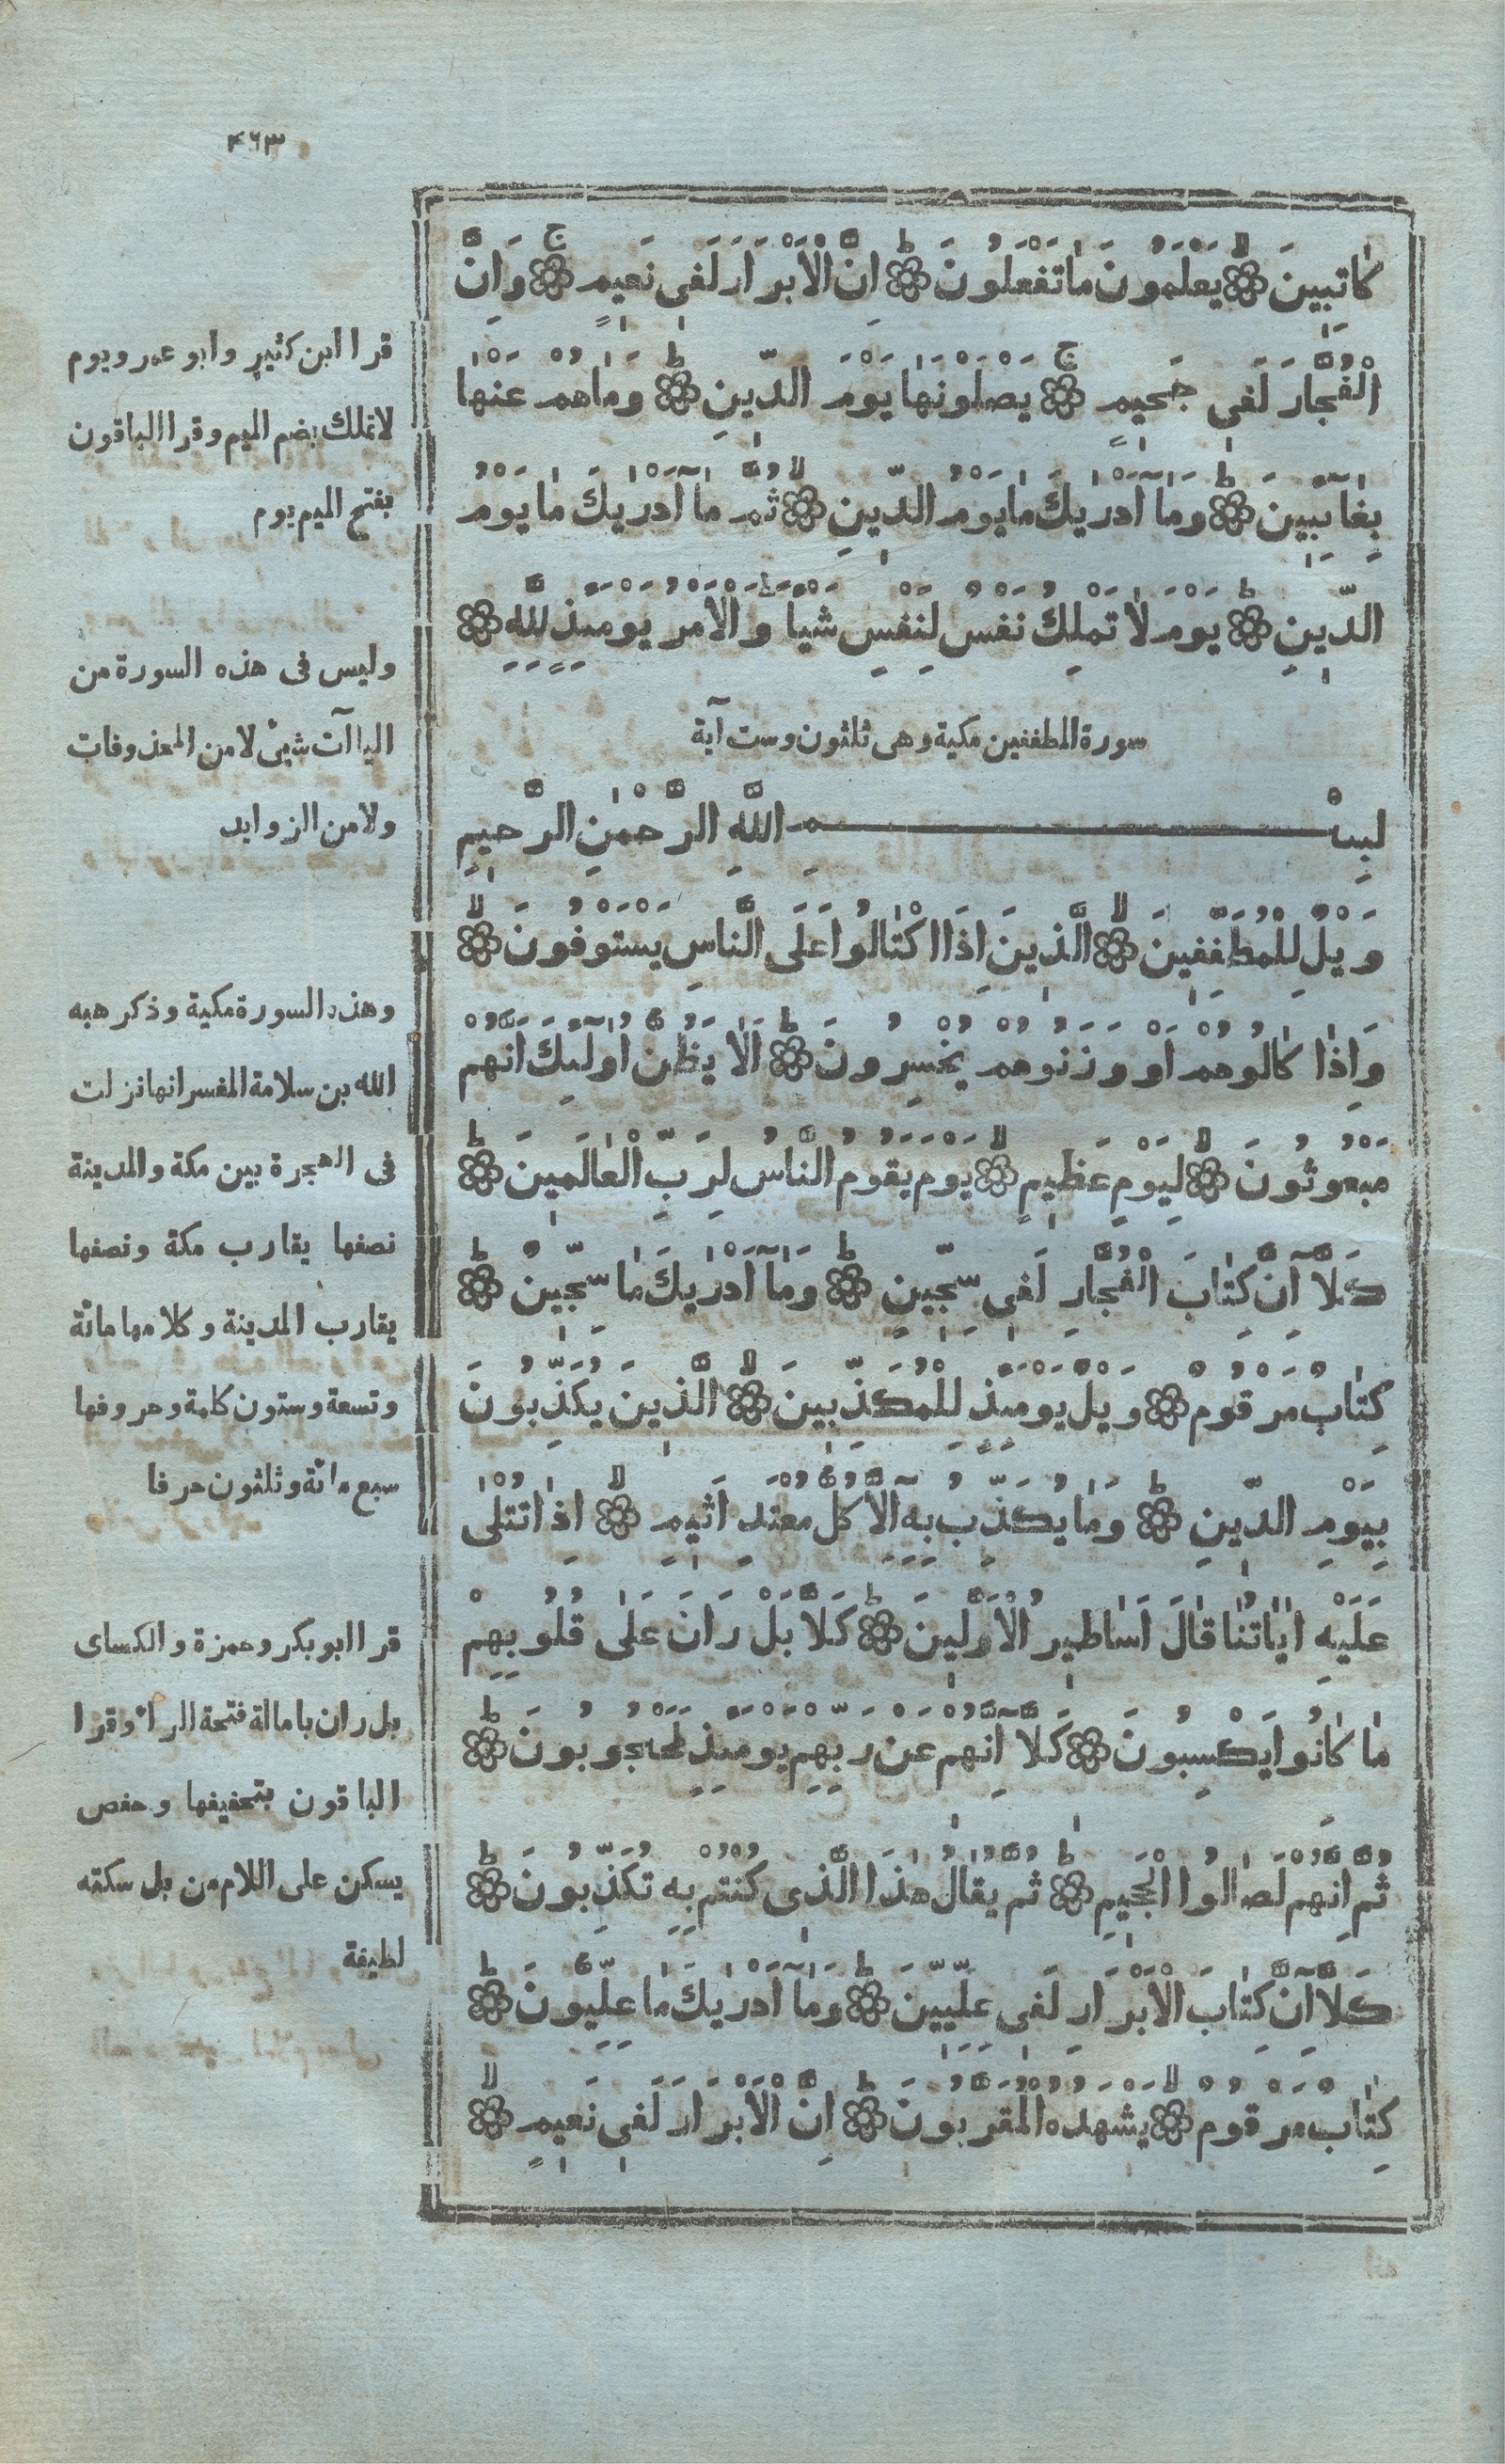 ۴۶۳
كَاتِبِينَ ۙ يَعْلَمُونَ مَا تَفْعَلُونَ ۞ اِنَّ الْاَبْرَارَ لَفِى نَعِيمٍ ۞ وَاِنَّ
الْفُجَّارَ لَفِى جَحِيمٍ ۞ يَصْلَوْنَهَا يَوْمَ الدِّينِ ۞ وَمَا هُمْ عَنْهَا
بِغَآئِبِينَ ۞ وَمَآ اَدْرٰيكَ مَا يَوْمُ الدِّينِ ۞ ثُمَّ مَآ اَدْرٰيكَ مَا يَوْمُ
الدِّينِ ۞ يَوْمَ لَا تَمْلِكُ نَفْسٌ لِنَفْسٍ شَيْاً وَالْاَمْرُ يَوْمَئِذٍ لِلّٰهِ ۞
سورة المطففين مكية وهى ثلثون وست آية
بِسْمِ اللَّهِ الرَّحْمٰنِ الرَّحِيمِ
وَيْلٌ لِلْمُطَفِّفِينَ ۞ الَّذِينَ اِذَا اكْتَالُوا عَلَى النَّاسِ يَسْتَوْفُونَ ۞
وَاِذَا كَالُوهُمْ اَوْ وَزَنُوهُمْ يُخْسِرُونَ ۞ اَلَا يَظُنُّ اُولٰٓئِكَ اَنَّهُمْ
مَبْعُوثُونَ ۞ لِيَوْمٍ عَظِيمٍ ۞ يَوْمَ يَقُومُ النَّاسُ لِرَبِّ الْعَالَمِينَ ۞
كَلَّآ اِنَّ كِتَابَ الْفُجَّارِ لَفِى سِجِّينٍ ۞ وَمَآ اَدْرٰيكَ مَا سِجِّينٌ ۞
كِتَابٌ مَرْقُومٌ ۞ وَيْلٌ يَوْمَئِذٍ لِلْمُكَذِّبِينَ ۞ الَّذِينَ يُكَذِّبُونَ
بِيَوْمِ الدِّينِ ۞ وَمَا يُكَذِّبُ بِهِٓ اِلَّا كُلُّ مُعْتَدٍ اَثِيمٍ ۞ اِذَا تُتْلٰى
عَلَيْهِ اٰيَاتُنَا قَالَ اَسَاطِيرُ الْاَوَّلِينَ ۞ كَلَّا بَلْ رَانَ عَلٰى قُلُوبِهِمْ
مَا كَانُوا يَكْسِبُونَ ۞ كَلَّآ اِنَّهُمْ عَنْ رَبِّهِمْ يَوْمَئِذٍ لَمَحْجُوبُونَ ۞
ثُمَّ اِنَّهُمْ لَصَالُوا الْجَحِيمِ ۞ ثُمَّ يُقَالُ هٰذَا الَّذِى كُنْتُمْ بِهِ تُكَذِّبُونَ ۞
كَلَّآ اِنَّ كِتَابَ الْاَبْرَارِ لَفِى عِلِّيِّينَ ۞ وَمَآ اَدْرٰيكَ مَا عِلِّيُّونَ ۞
كِتَابٌ مَرْقُومٌ ۞ يَشْهَدُهُ الْمُقَرَّبُونَ ۞ اِنَّ الْاَبْرَارَ لَفِى نَعِيمٍ ۞
قرا ابن كثير وابو عمرو يوم
لا تملك بضم الميم وقرا الباقون
بفتح الميم يوم
وليس فى هذه السورة من
الياآت شيئ لا من المحذوفات
ولا من الزوايد
وهذه السورة مكية وذكر هبه
الله بن سلامة المفسر انها نزلت
فى الهجرة بين مكة والمدينة
نصفها يقارب مكة ونصفها
يقارب المدينة وكلامها مائة
وتسعة وستون كلمة وحروفها
سبع مائة وثلثون حرفا
قرا ابو بكر وحمزة والكساى
بل ران بامالة فتحة الراء وقرا
الباقون بتخفيفها وحفص
يسكن على اللام من بل سكتة
لطيفة